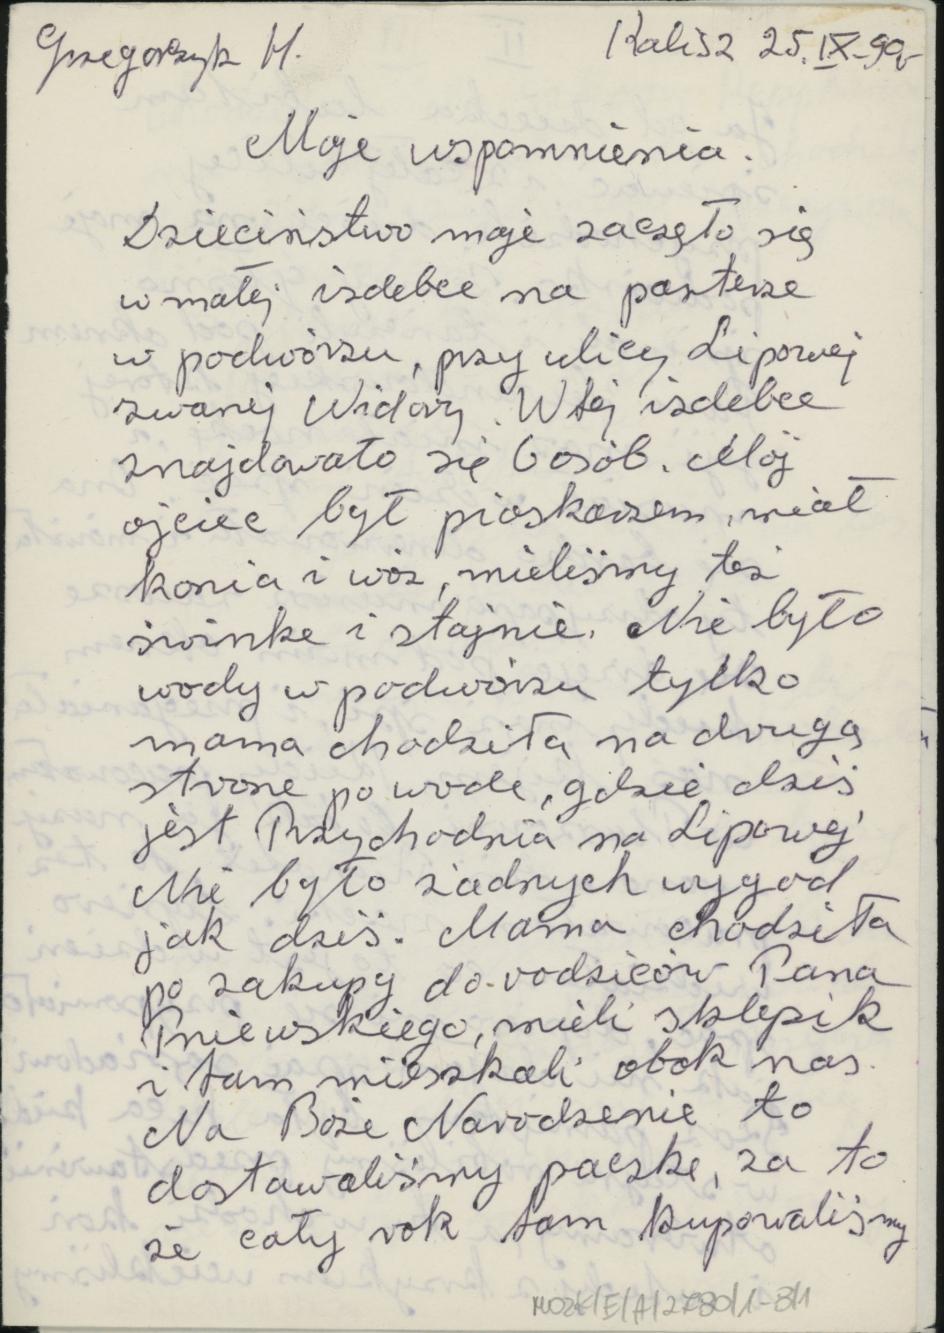 Grzegorzyk H.
Kalisz 25.IX-99r
Moje wspomnienia.
Dzieciństwo moje zaczęło się
w małej izdebce na parterze
w podwórzu, przy ulicy Lipowej
zwanej Widory. W tej izdebce
znajdowało się 6 osób. Mój
ojciec był pioskarzem, miał
konia i wóz, mieliśmy też
świnke i stajnie. Nie było
wody w podwórzu tylko
mama chodziła na drugą
strone po wode, gdzie dziś
jest Przychodnia na Lipowej
Nie było żadnych wygod
jak dziś. Mama chodziła
po zakupy do rodziców Pana
Pniewskiego, mieli sklepik
i tam mieszkali obok nas.
Na Boże Narodzenie to
dostawaliśmy paczke, za to
że cały rok tam kupowaliśmy
MOZK/E/A/2780/1-8/1